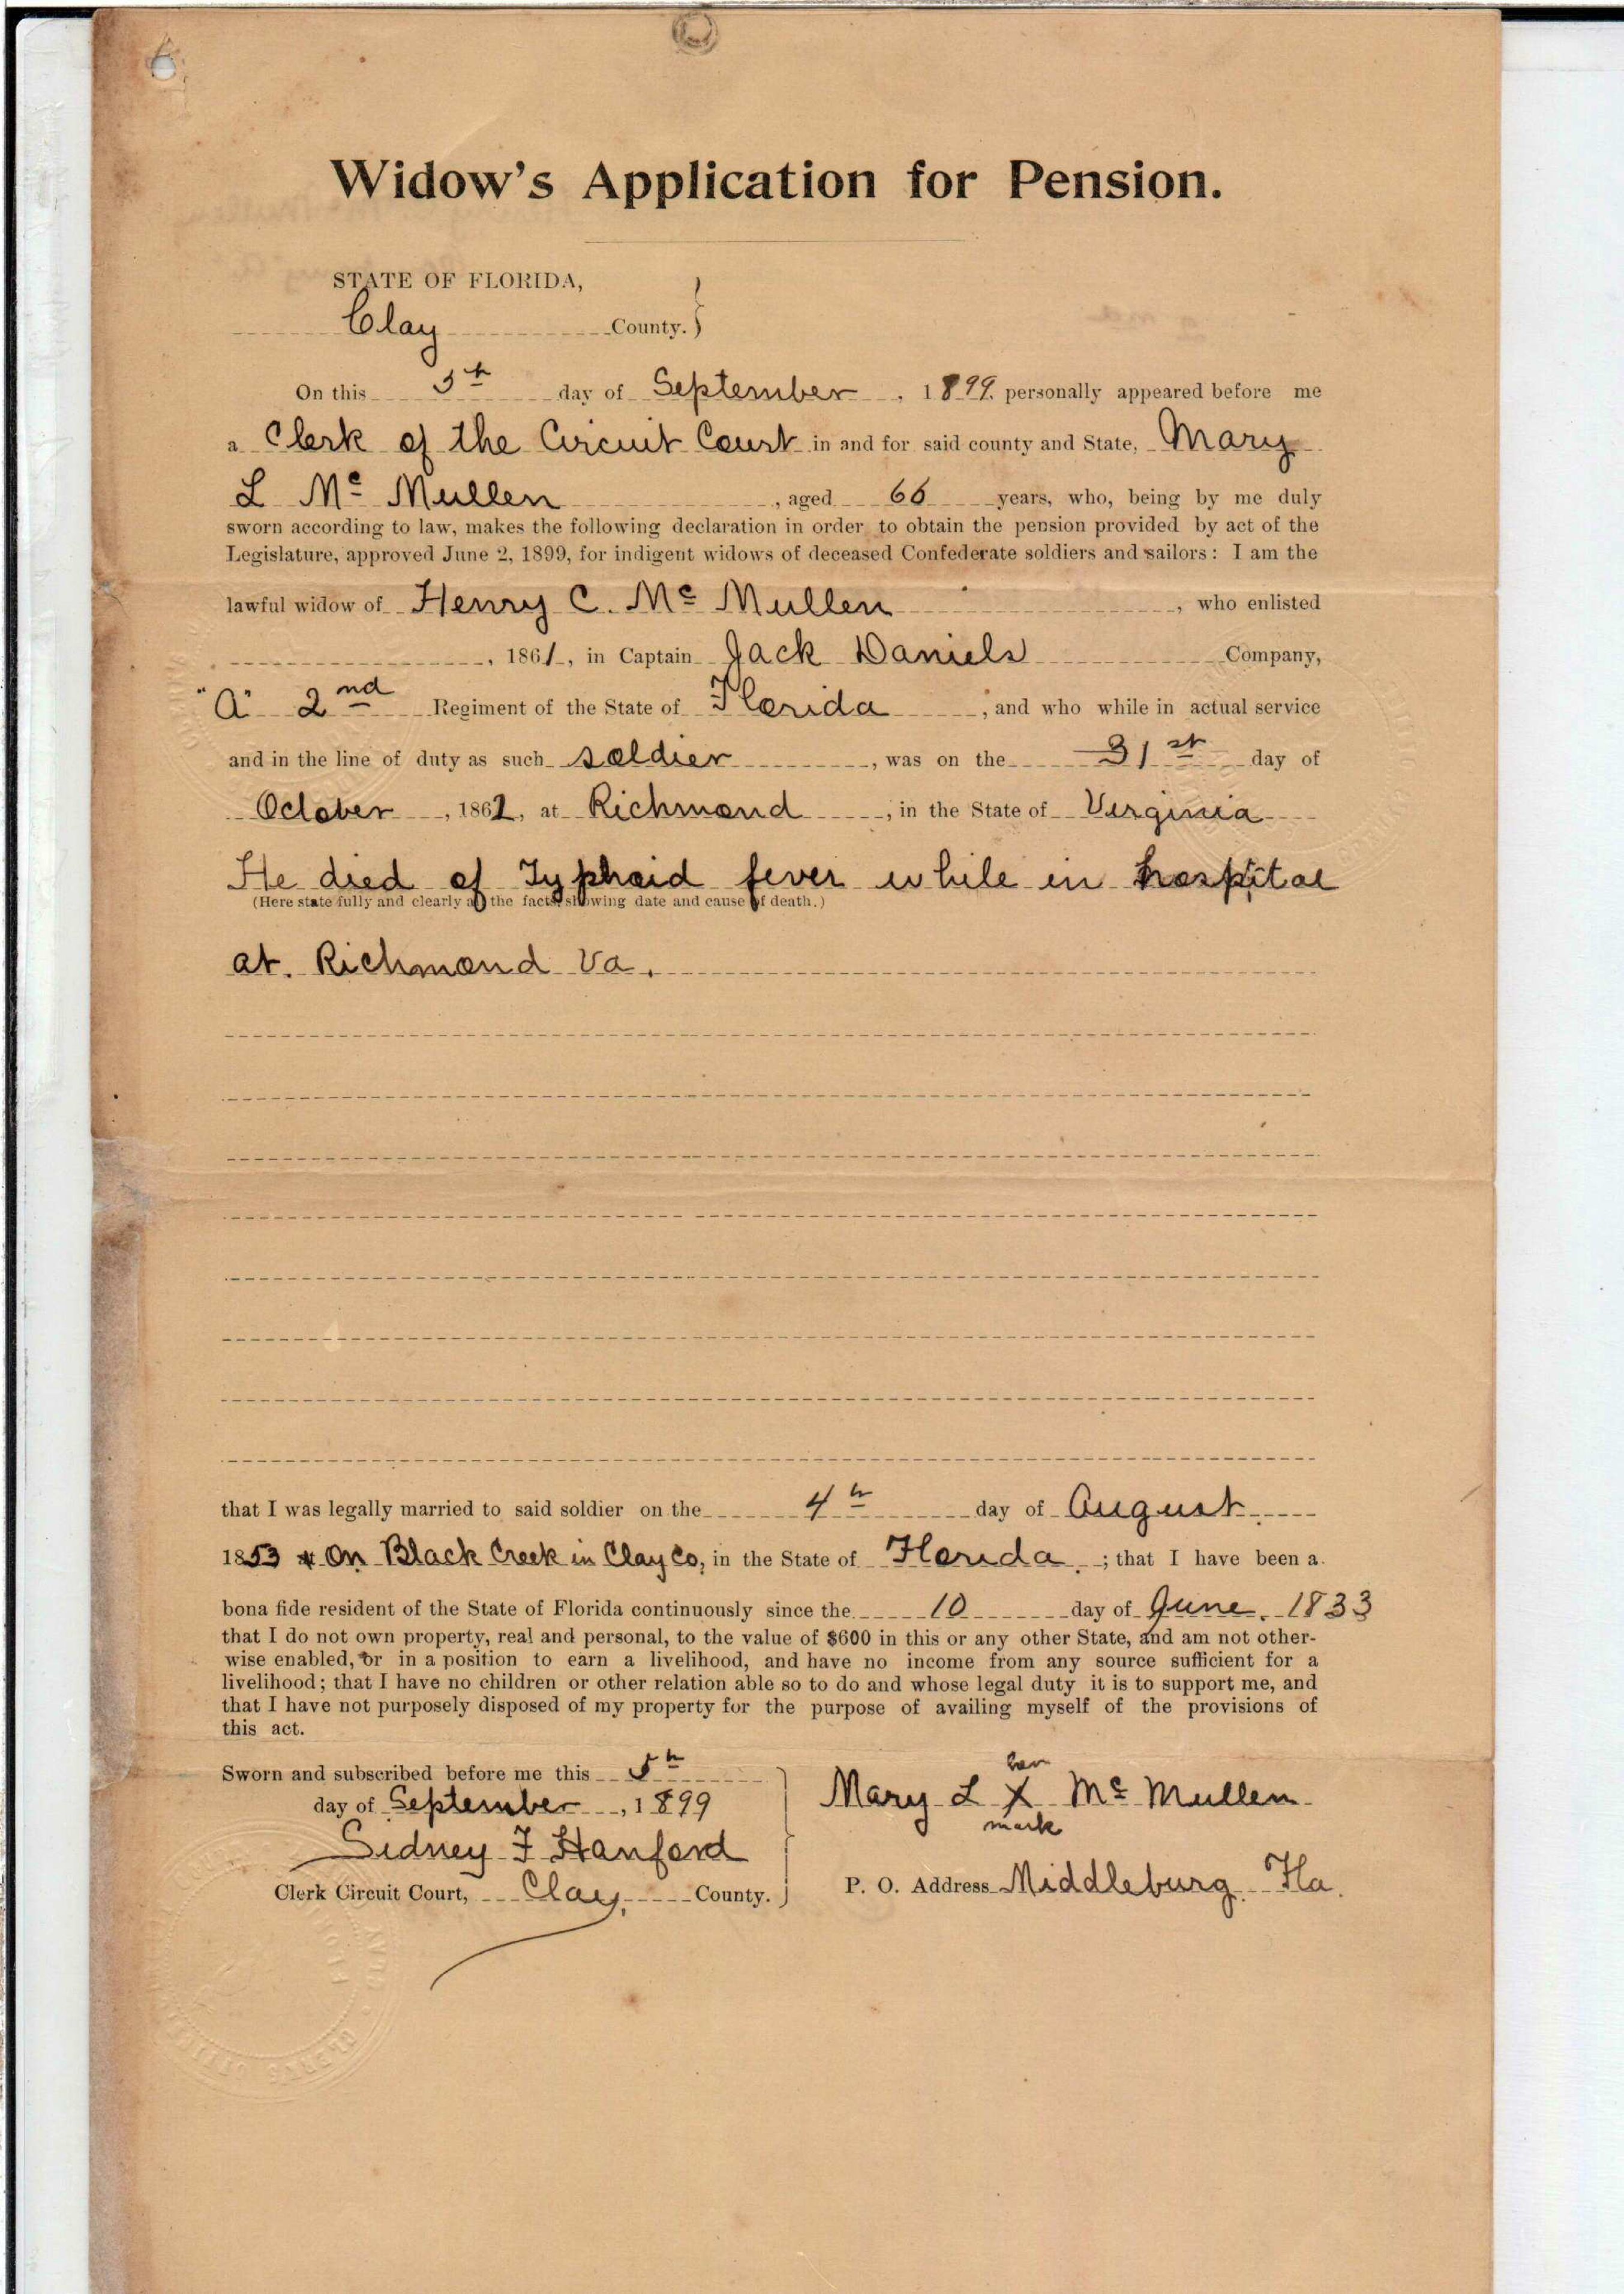 Widow's Application for Pension.
STATE OF FLORIDA,
Clay County. }
On this 5th day of September, 1899, personally appeared before me
a Clerk of the Circuit Court in and for said county and State, Mary
L Mc Mullen, aged 66 years, who, being by me duly
sworn according to law, makes the following declaration in order to obtain the pension provided by act of the
Legislature, approved June 2, 1899, for indigent widows of deceased Confederate soldiers and sailors: I am the
lawful widow of Henry C. Mc Mullen, who enlisted
, 1861, in Captain Jack Daniels Company,
"A" 2nd Regiment of the State of Florida, and who while in actual service
and in the line of duty as such soldier, was on the 31st day of
October, 1862, at Richmond, in the State of Virginia
He died of Typhoid fever while in hospital
(Here state fully and clearly all the facts, showing date and cause of death.)
at. Richmond Va.
that I was legally married to said soldier on the 4th day of August.
1853 at On Black Creek in Clay Co, in the State of Florida.; that I have been a
bona fide resident of the State of Florida continuously since the 10 day of June. 1833
that I do not own property, real and personal, to the value of $600 in this or any other State, and am not other-
wise enabled, or in a position to earn a livelihood, and have no income from any source sufficient for a
livelihood; that I have no children or other relation able so to do and whose legal duty it is to support me, and
that I have not purposely disposed of my property for the purpose of availing myself of the provisions of
this act.
Sworn and subscribed before me this 5th
day of September, 1899
Sidney F Hanford
Clerk Circuit Court, Clay, County. }
her
Mary L X Mc Mullen
mark
P. O. Address Middleburg. Fla.